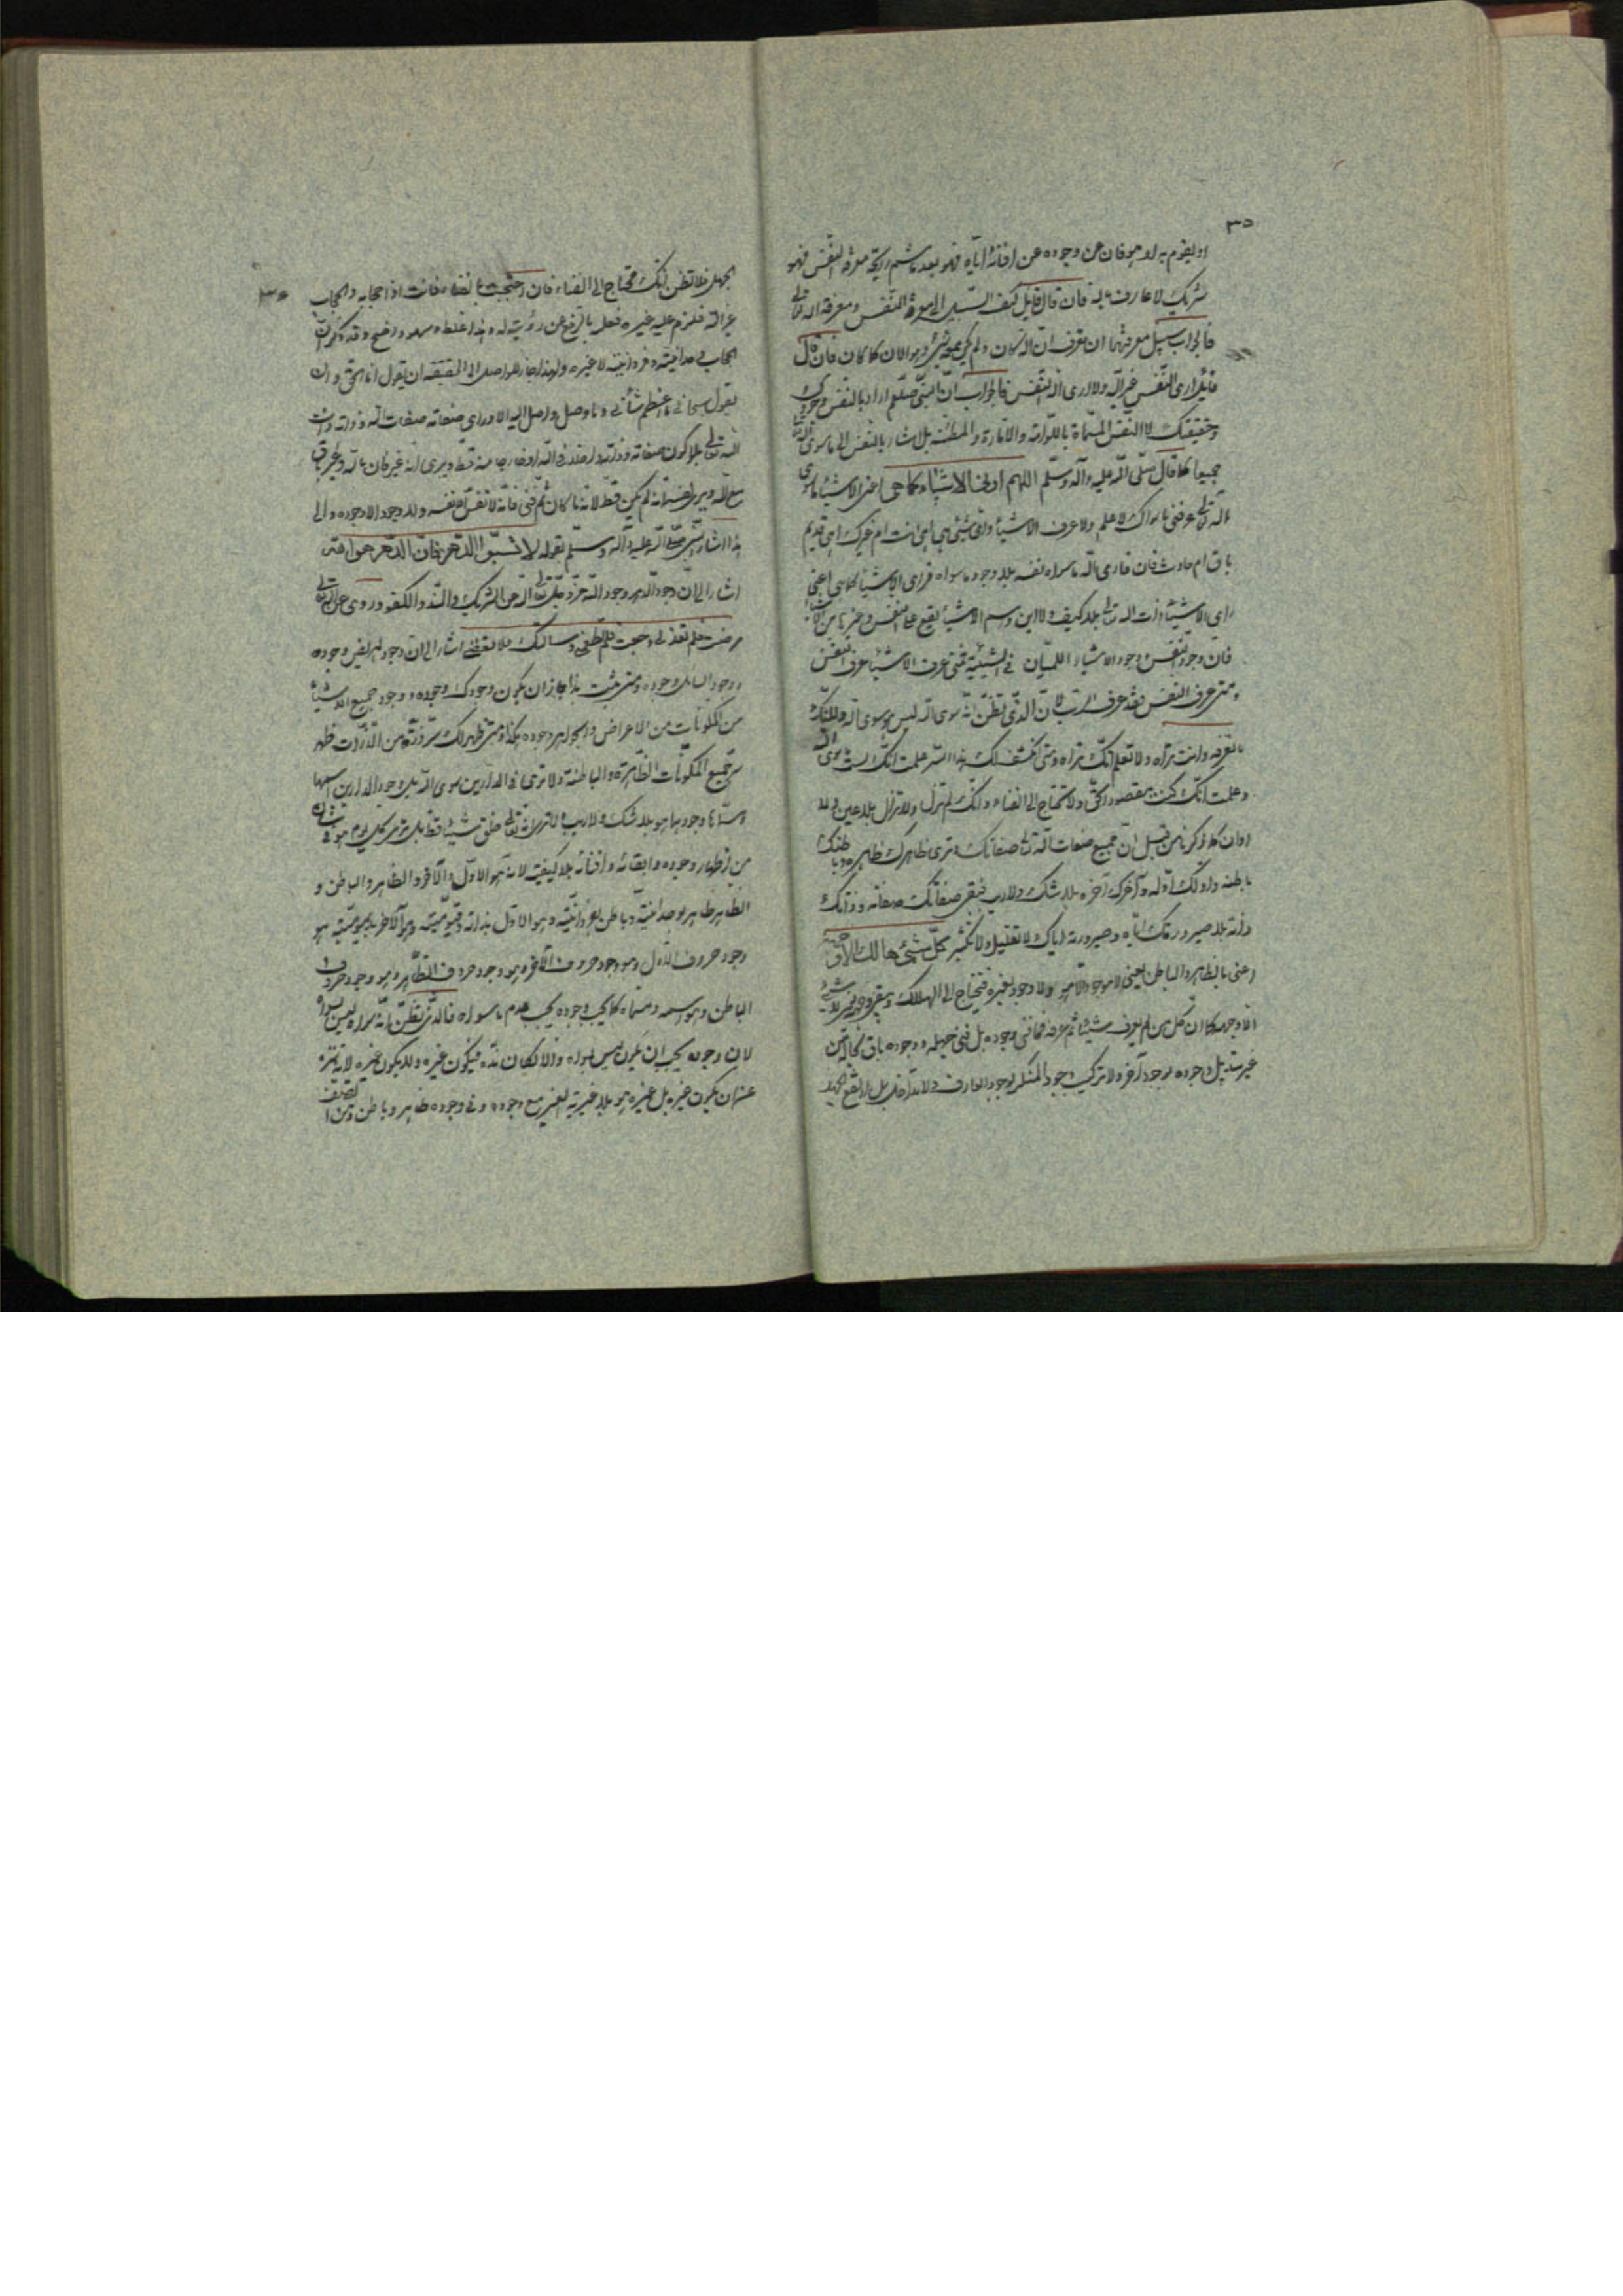 ٣٥
او يقوم به او هو فان عن وجوده عن افنائه اياه فهو بعد ما شم رايحة معرفة النفس فهو
شريك لا عارف به فان قال قايل كيف السبيل الى معرفة النفس ومعرفة الله تعالى
فالجواب سبيل معرفتهما ان تعرف ان الله كان ولم يكن معه شئ وهو الان كما كان فان قال
قايل ارى النفس غير الله ولا ارى الله النفس فالجواب ان النبى صلعم اراد بالنفس وجودك
وحقيقتك لا النفس المسماة باللوامه والامارة والمطمئنه بل اشار بالنفس الى ما سوى الله تعالى
جميعا كما قال صلى الله عليه وآله وسلم اللهم ارنى الاشياء كما هى اعنى الاشياء ما سوى
الله تعالى عرفنى ما سواك لاعلم ولاعرف الاشياء واى شئ هى اهى انت ام غيرك اهى قديم
باق ام حادث فان فارى الله ما سواه نفسه بلا وجود ما سواه فراى الاشياء كما هى اعنى
راى الاشياء ذات الله تعالى بلا كيف ولا اين واسم الاشياء يقع على النفس وغيرها من الاشياء
فان وجود النفس ووجود الاشياء سيان فى الشيئية فمتى عرف الاشياء عرف النفس
ومتى عرف النفس فقد عرف الرب لان الذى تظن انه سوى الله ليس هو سوى الله ولكنك
ما تعرفه وانت تراه ولا تعلم انك تراه ومتى انكشف لك هذا السر علمت انك لست سوى الله
وعلمت انك كنت مقصودك ولا تحتاج الى الفناء وانك لم تزل ولا تزال بلا حين ولا
اوان كما ذكرنا من قبل ان جميع صفات الله تعالى صفاتك وترى ظاهرك ظاهره وباطنك
باطنه واولك اوله وآخرك آخره بلا شك ولا ريب فيبقى صفاتك صفاته وذاتك
ذاته بلا صيرورتك اياه وصيرورته اياك لا تقليل ولا تكثير كل شئ هالك الا وجهه
اعنى بالظاهر والباطن يعنى لا موجود الا هو ولا وجود لغيره فيحتاج الى الهلاك ويبقى وجهه يعنى لا شئ
الا وجهه كما ان كل من لم يعرف شيئا ثم عرفه فما فنى وجوده بل فنى جهله ووجوده باق بحاله من
غير تبديل وجوده بوجود آخر ولا تركيب وجود المنكر بوجود العارف ولا تداخل بل ارتفع الجهل
٣٦
الجهل فلا تظن انك تحتاج الى الفناء فان احتجت الى الفناء فانت اذا حجابه والحجاب
غير الله فلزم عليه غيره فعل بالرفع عن رؤيته له وهذا غلط وسهو واضح وقد ذكرنا ان
الحجاب وحدانيته وفردانيته لا غيره ولهذا جاز للواصل الى الحقيقة ان يقول انا الحق وان
يقول سبحانى ما اعظم شأنى وما وصل واصل اليه الا وراى صفاته صفات الله وذاته ذات
الله تعالى بلا كون صفاته وذاته داخلا فى الله او خارجا منه قط ويرى انه غير فان بالله وغير باق
مع الله ويرى نفسه انه لم يكن قط لا انه كان ثم فنى فانه لا نفس الا نفسه ولا وجود الا وجوده والى
هذا اشار النبى صلى الله عليه وآله وسلم بقوله لا تسبوا الدهر فان الدهر هو الله
اشار الى ان وجود الدهر وجود الله عز وجل تعالى الله عن الشريك والند والكفو وروى عن الله تعالى
مرضت فلم تعدنى وجعت فلم تطعمنى وسالتك فلا تعطنى اشار الى ان وجود المريض وجوده
ووجود السايل وجوده ومتى ثبت هذا جاز ان يكون وجودك وجوده ووجود جميع الاشياء
من المكونات من الاعراض والجواهر وجوده هكذا ومتى ظهر لك سر ذرة من الذرات ظهر
سر جميع المكونات الظاهرة والباطنة ولا ترى فى الدارين سوى الله بل وجود الدارين اسمها
ومسماها وجودها هو بلا شك ولا ريب لا ترى الله تعالى خلق شيئا قط بل ترى كل يوم هو فى شان
من اظهار وجوده وابقائه وافنائه بلا كيفية لانه هو الاول والآخر والظاهر والباطن و
الظاهر ظاهر بوحدانيته وباطن بفردانيته وهو الاول بذاته وقيوميته وهو الآخر بديموميته هو
وجود حروف الاول وهو وجود حروف الآخر وهو وجود حروف الظاهر وهو وجود حروف
الباطن وهو اسمه ومسماه كما يجب وجوده يجب عدم ما سواه فالذى تظن انه سواه ليس سواه
لان وجوده يجب ان يكون ليس سواه والا لكان نده فيكون غيره ولا يكون غيره لانه تنزه
عنه ان يكون غيره بل غيره هو بلا غيرية الغير مع وجوده وفى وجوده ظاهر وباطن ومن اتصف